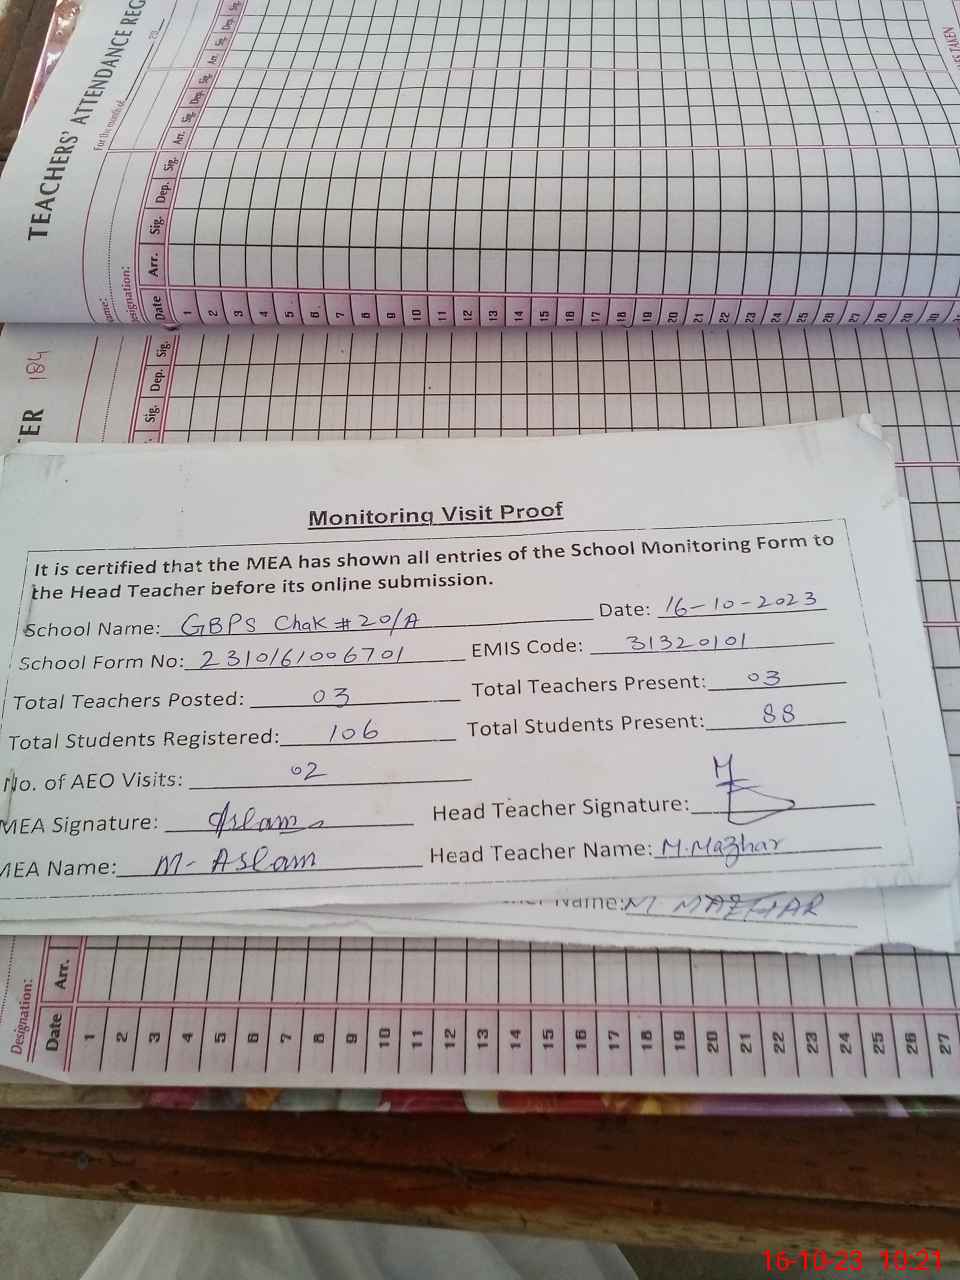 TEACHERS' ATTENDANCE REG
For the month of 20
ES TAKEN
ame:
esignation:
Arr. Sig. Dep. Sig. Arr. Sig. Dep. Sig.
Date Arr. Sig. Dep. Sig.
1 2 3 4 5 6 7 8 9 10 11 12 13 14 15 16 17 18 19 20 21 22 23 24 25 26 27 28 29 30
ER 184
Sig. Dep. Sig.
Monitoring Visit Proof
It is certified that the MEA has shown all entries of the School Monitoring Form to
the Head Teacher before its online submission.
School Name: GBPS Chak # 20/A Date: 16-10-2023
School Form No: 2310161006701 EMIS Code: 31320101
Total Teachers Posted: 03 Total Teachers Present: 03
Total Students Registered: 106 Total Students Present: 88
No. of AEO Visits: 02
MEA Signature: Aslam Head Teacher Signature:
MEA Name: M- Aslam Head Teacher Name: M. Mazhar
Name: M MAZHAR
Designation:
Date Arr.
1 2 3 4 5 6 7 8 9 10 11 12 13 14 15 16 17 18 19 20 21 22 23 24 25 26 27
16-10-23 10:21